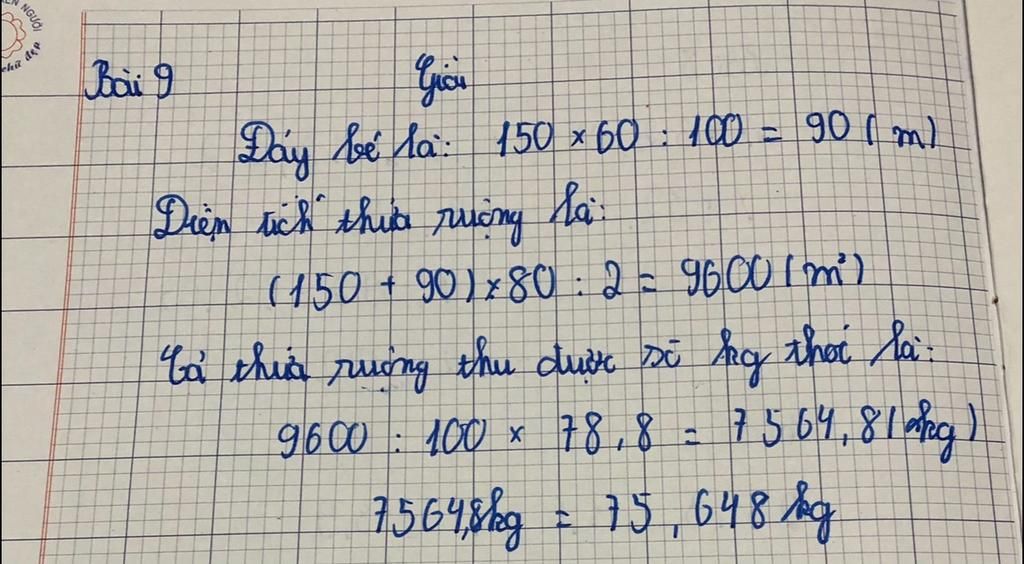 NGƯỜI
chữ đẹp
Bài 9 Giải
Đáy bé là: 150 × 60 : 100 = 90 (m)
Diện tích thửa ruộng là:
(150 + 90) × 80 : 2 = 9600 (m²)
Cả thửa ruộng thu được số kg thóc là:
9600 : 100 × 78,8 = 7564,8 (kg)
7564,8kg = 75,648 kg